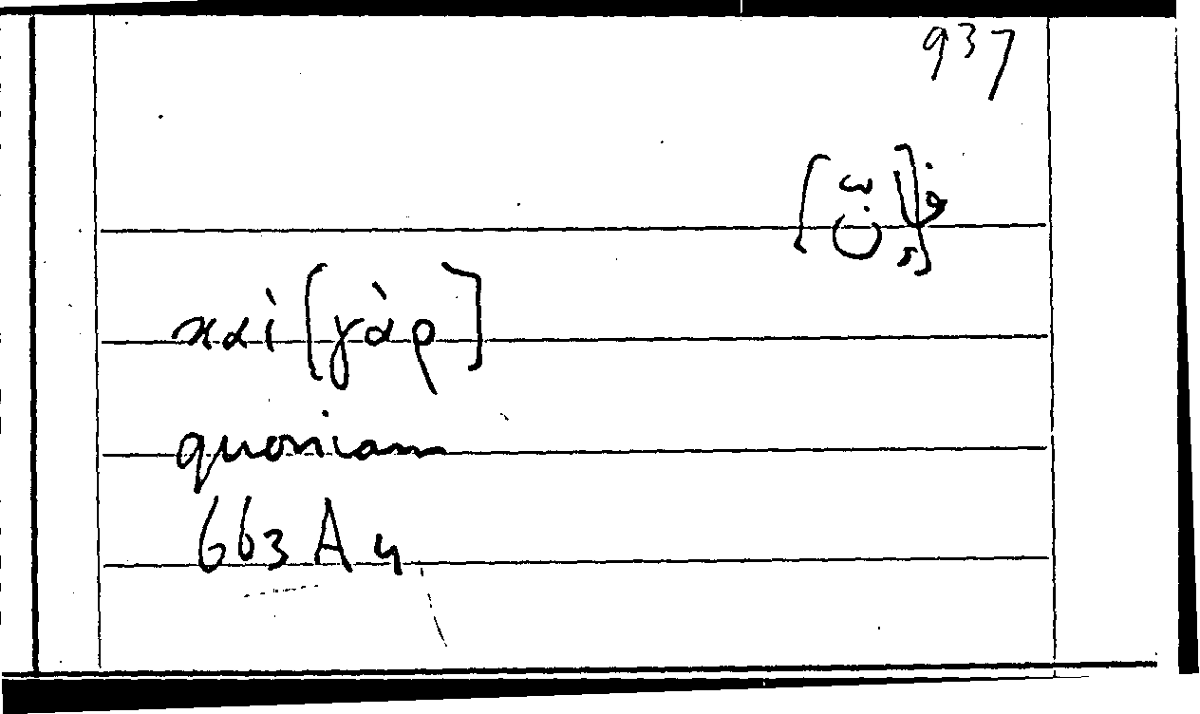 937
καὶ [γὰρ]
quoniam
663 A 4